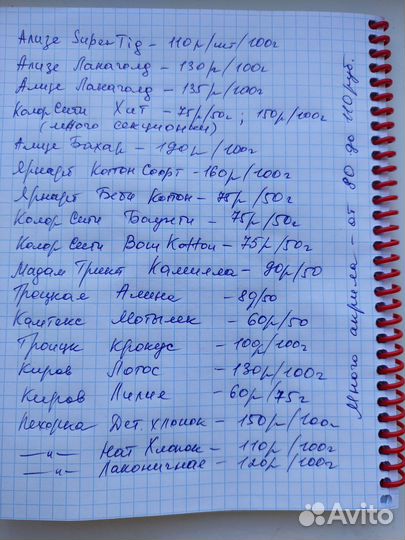 Ализе SuperTig - 110р/шт/100г
Ализе Ланаголд - 130р/100г
Ализе Ланаголд - 135р/100г
Колор Сити Хит - 75р/50г; 150р/100г
(много секционный)
Ализе Бахар - 190р/100г
Ярнарт Коттон Софт - 160р/100г
Ярнарт Беби Коттон - 75р/50г
Колор Сити Баунти - 75р/50г
Колор Сити Вош Коттон - 75р/50г
Мадам Трикот Камилла - 90р/50
Троицкая Алина - 80/50
Камтекс Мотылек - 60р/50
Троицк Крокус - 100р/100г
Киров Лотос - 130р/100г
Киров Лилия - 60р/75г
Пехорка Дет. хлопок - 150р/100г
—"— Нат Хлопок - 110р/100г
—"— Лаконичная - 120р/100г
Много акрила - от 80 до 110 руб.
Avito